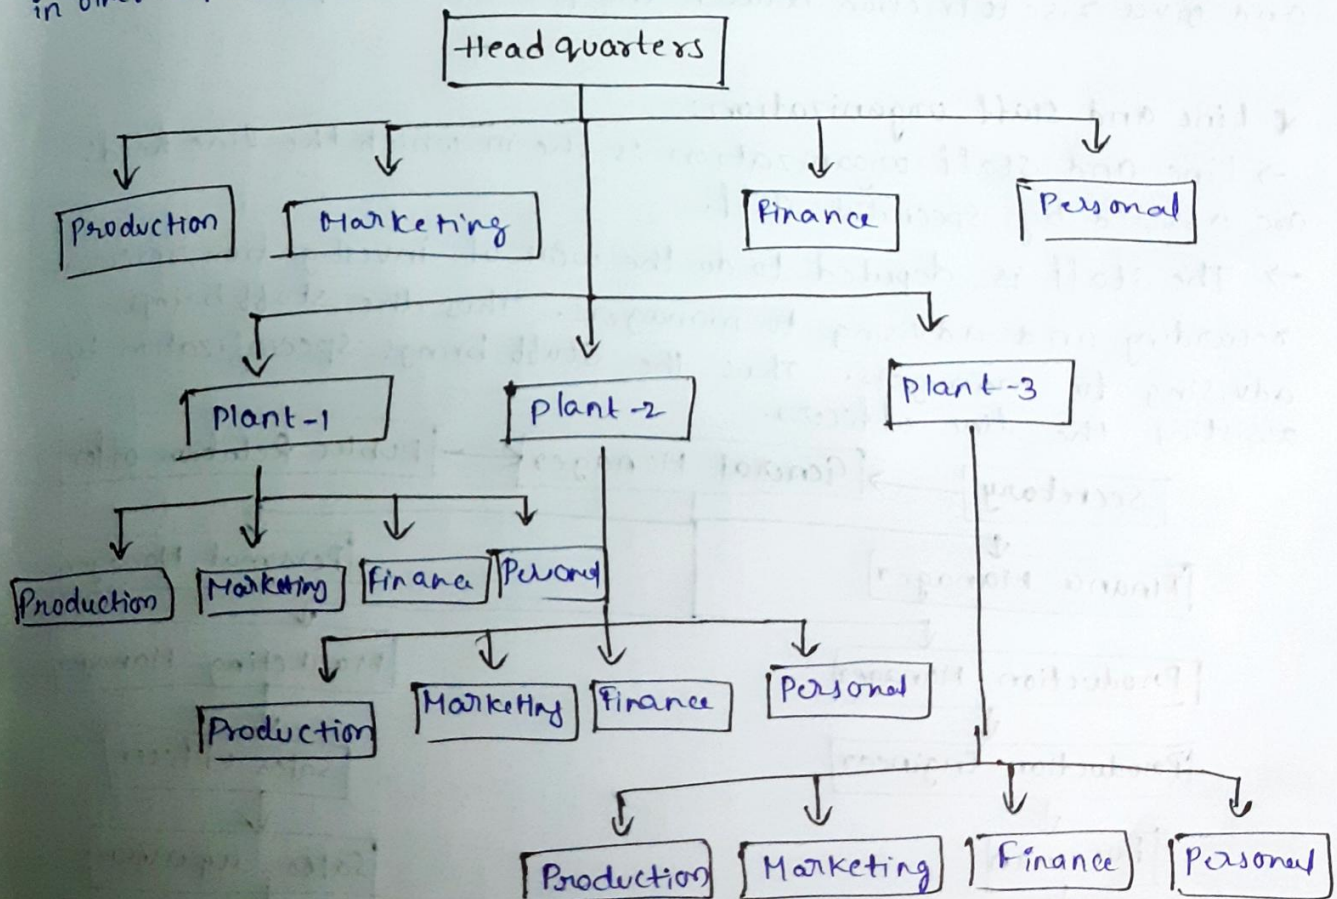 in
Head quarters
Production Marketing Finance Personal
Plant-1 Plant-2 Plant-3
Production Marketing Finance Personal
Production Marketing Finance Personal
Production Marketing Finance Personal